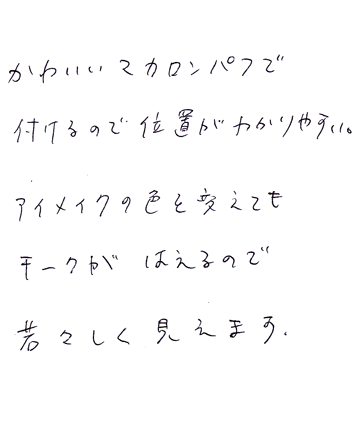 かわいいマカロンパフで
付けるので位置がわかりやすい。
アイメイクの色を変えても
チークが はえるので
若々しく見えます.